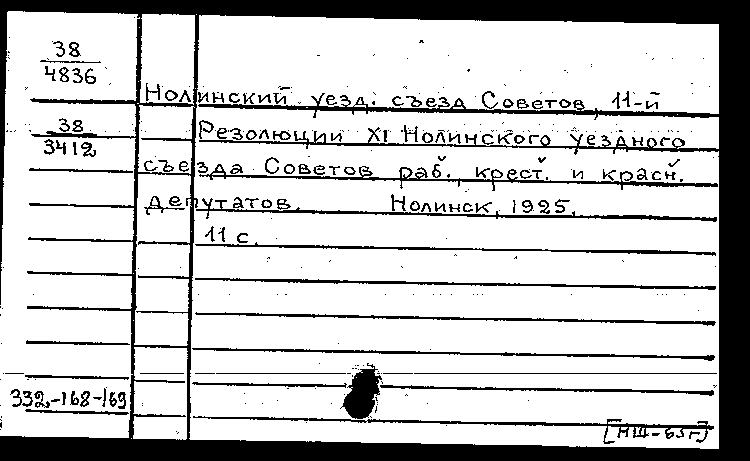 38
4836
Нолинский уезд. съезд Советов, 11-й
38
3412
Резолюции XI Нолинского уездного
съезда Советов раб., крест. и красн.
депутатов. Нолинск, 1925.
11 с.
332-168-169